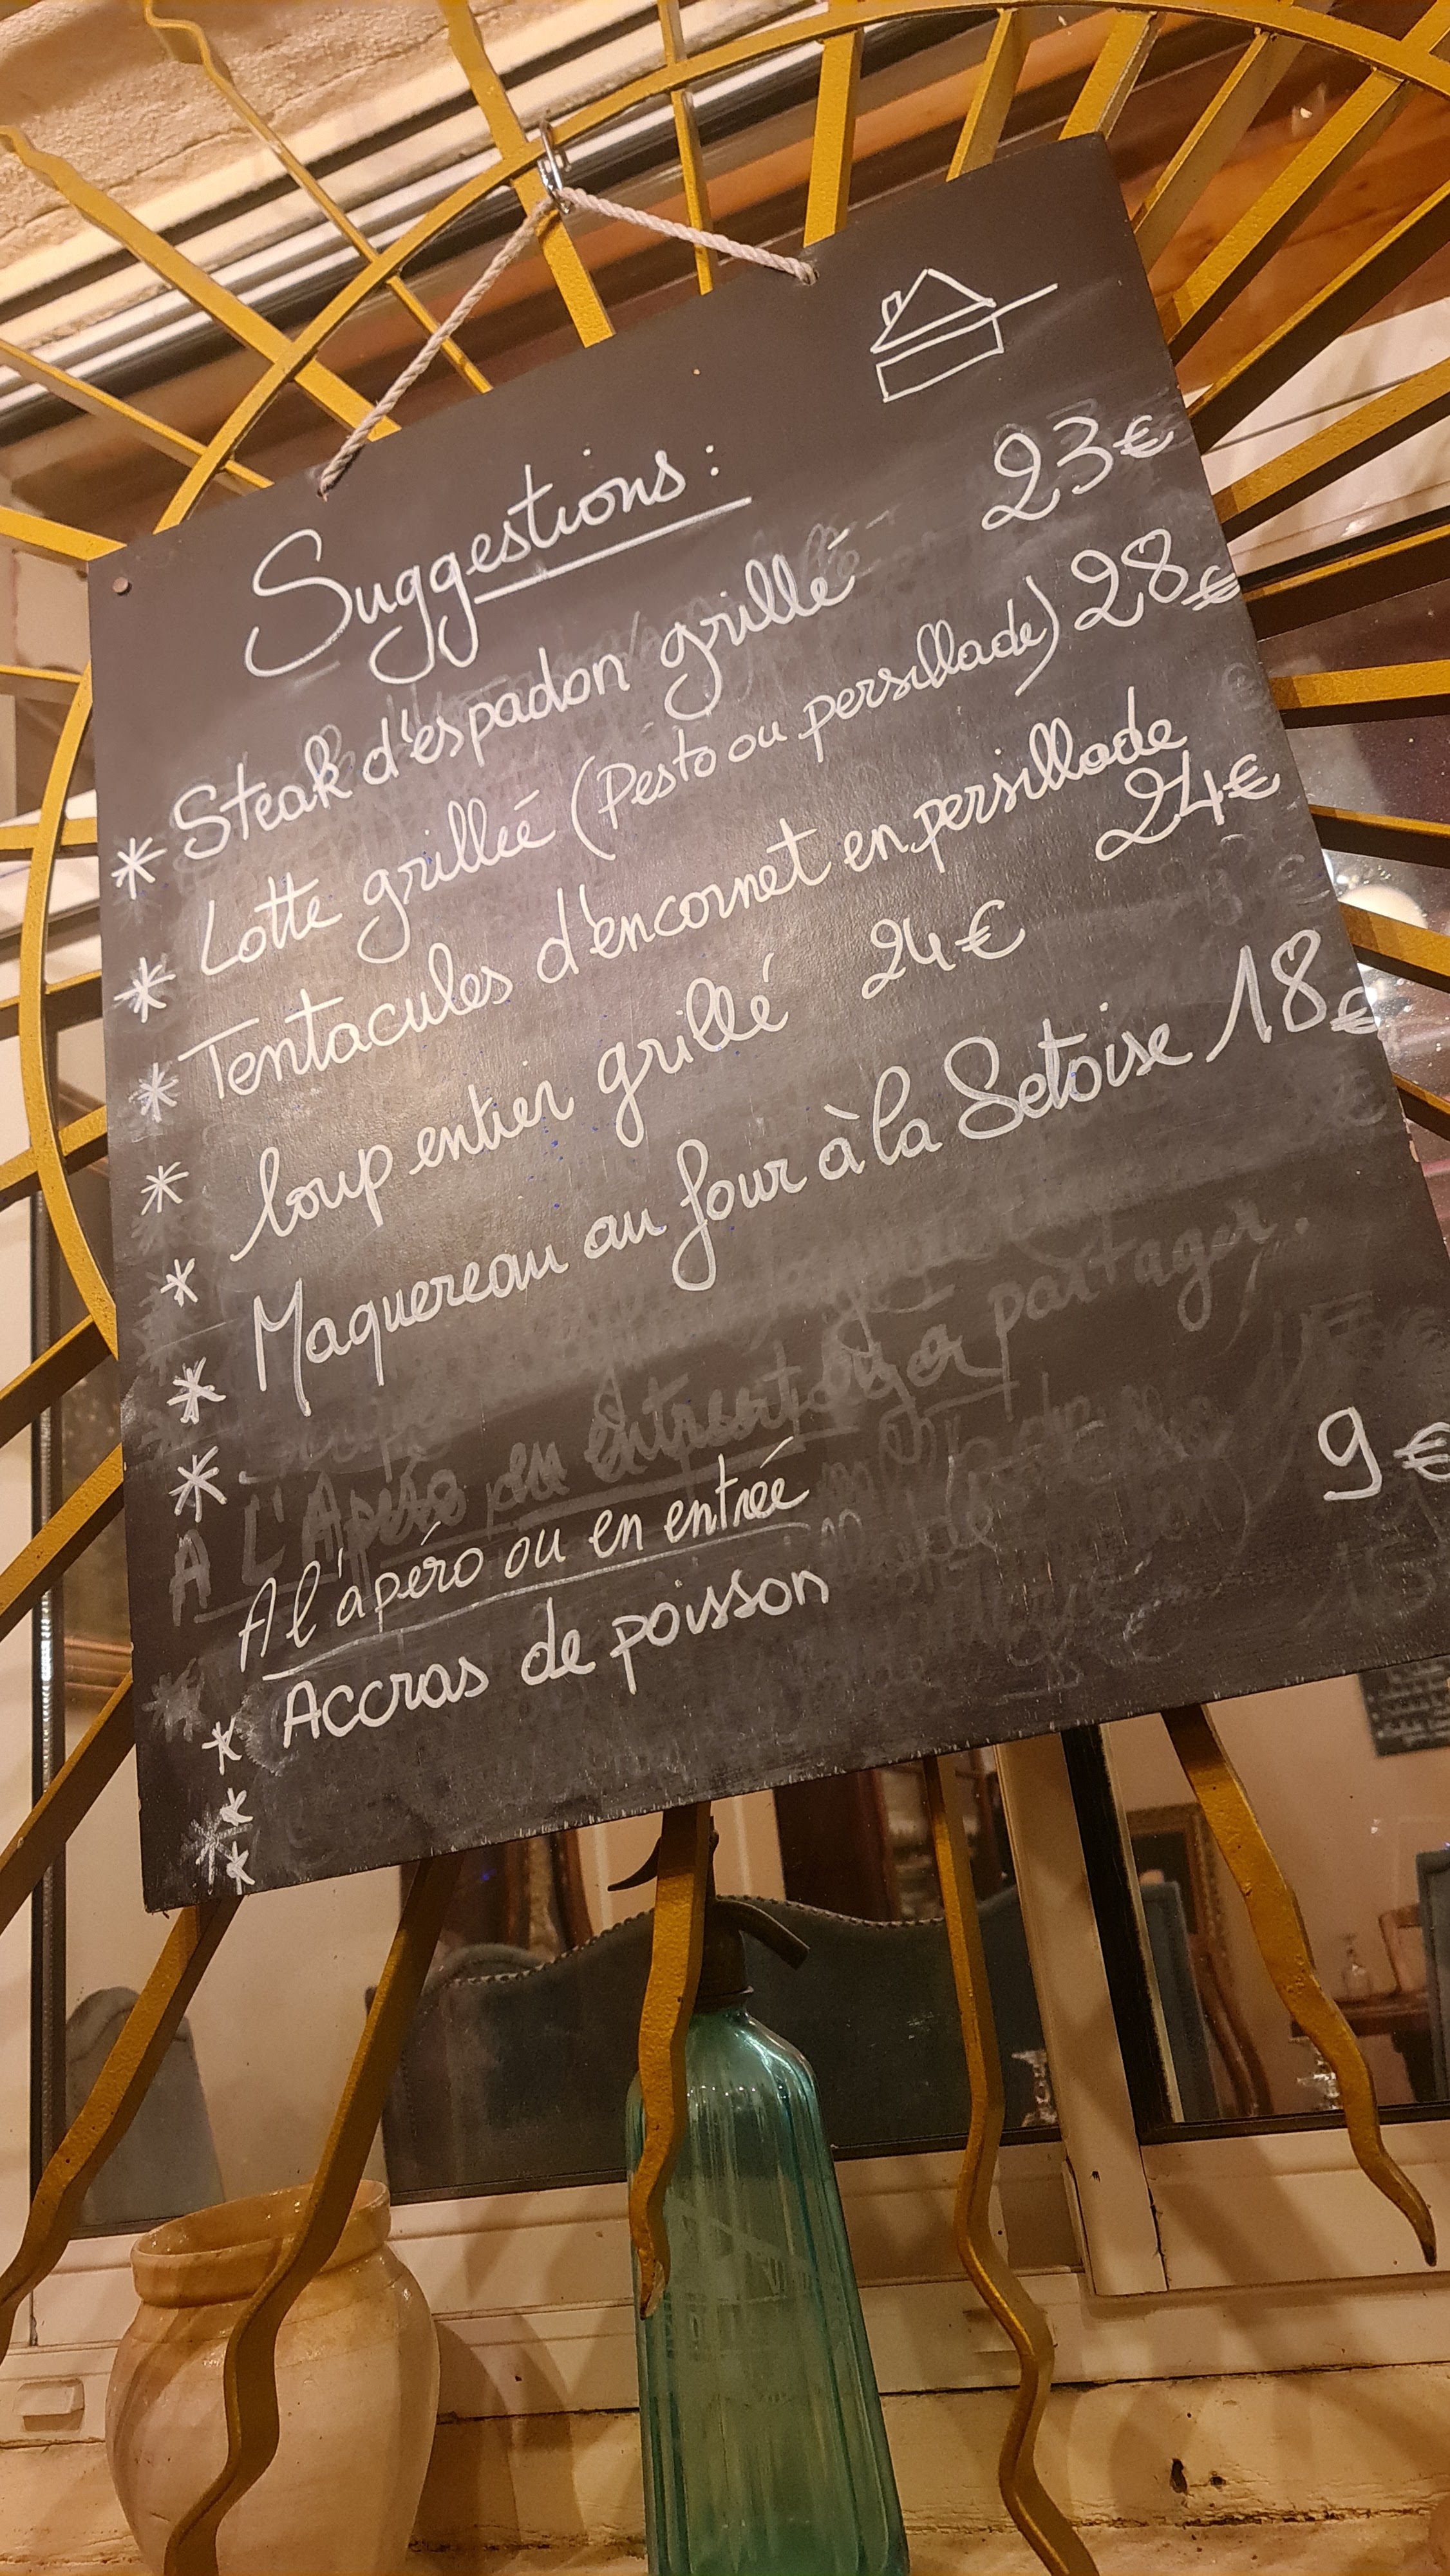 Suggestions :
* Steak d'espadon grillé 23€
* Lotte grillée (Pesto ou persillade) 28€
* Tentacules d'encornet en persillade
24€
* loup entier grillé 24€
* Maquereau au four à la Setoise 18€
A L'Apéro ou entrée partager.
A l'apéro ou en entrée
* Accras de poisson 9€